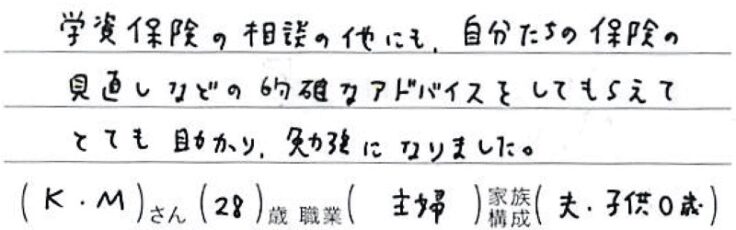 学資保険の相談の他にも、自分たちの保険の
見直しなどの的確なアドバイスをしてもらえて
とても助かり、勉強になりました。
(K・M)さん(28)歳 職業(主婦)家族構成(夫・子供0歳)